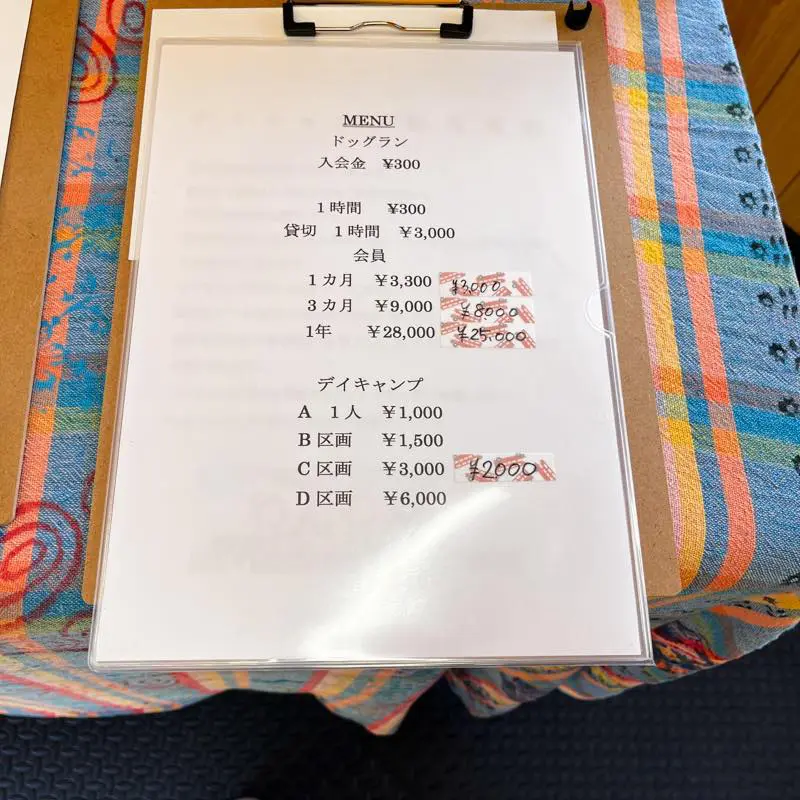 MENU
ドッグラン
入会金 ¥300
1時間 ¥300
貸切 1時間 ¥3,000
会員
1カ月 ¥3,300 ¥3,000
3カ月 ¥9,000 ¥8,000
1年 ¥28,000 ¥25,000
デイキャンプ
A 1人 ¥1,000
B区画 ¥1,500
C区画 ¥3,000 ¥2000
D区画 ¥6,000